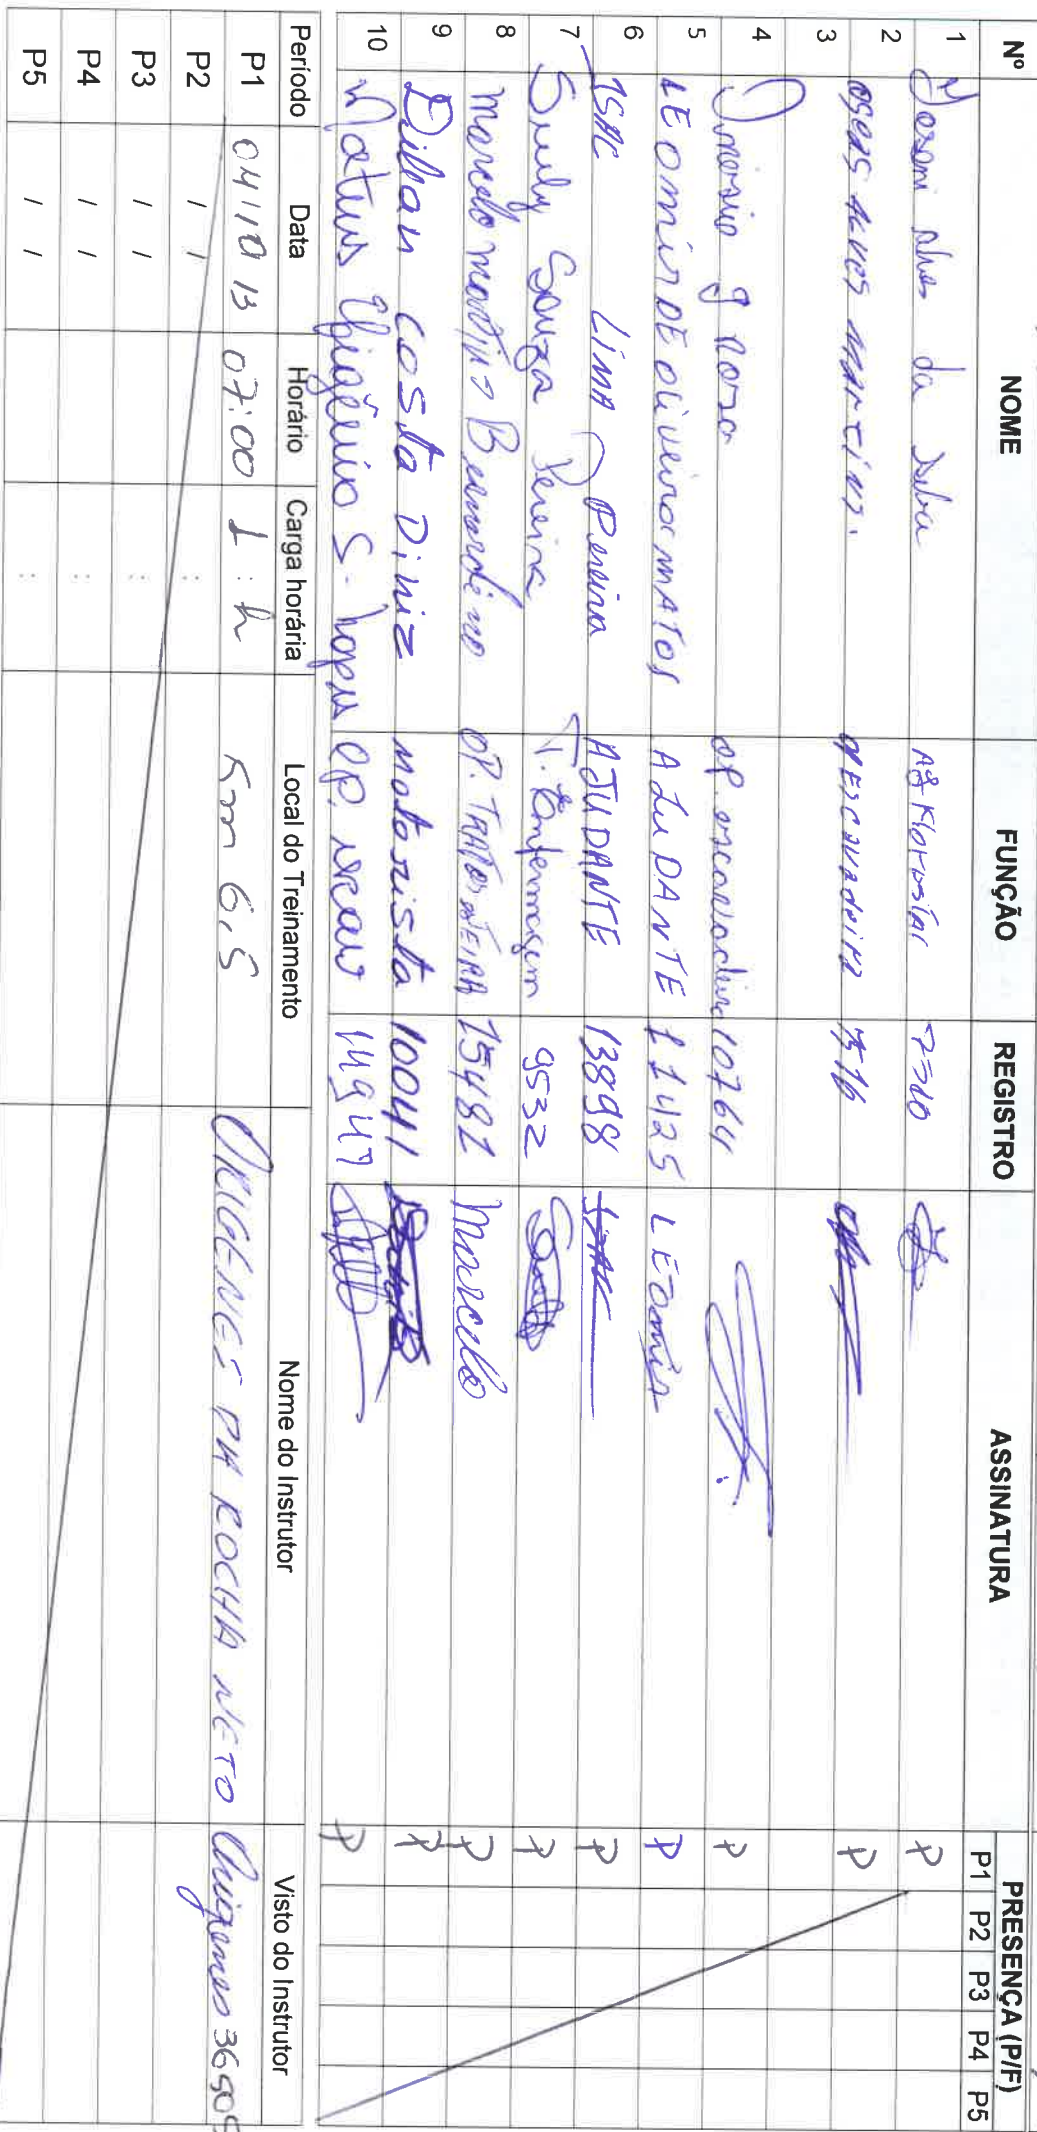 Nº NOME FUNÇÃO REGISTRO ASSINATURA PRESENÇA (P/F)
P1 P2 P3 P4 P5
1 Josoni alves da Silva Ag Florestal P
2 oseas Alves martins. 7516 P
3
4 Onesio g rosa op. escavadeira 10764 P
5 LEOmir DE oliveira mATOS AJuDANTE 11425 LEOmir P
6 ISAC LimA Pereira AJUDANTE 13898 ISAC P
7 Suely Souza Pereira T. Enfermagem 9532 P
8 Marcelo martins Bernardino OP. TRATOR ESTEIRA 15481 Marcelo P
9 Dilvan Costa Diniz motorista 10041 P
10 Mateus Higênio S. Lopes Op. escav 14947 P
Período Data Horário Carga horária Local do Treinamento Nome do Instrutor Visto do Instrutor
P1 04/10/13 07:00 1 : h Km 6,5 ORIGENES DA ROCHA NETO Origenes 36505
P2 / / :
P3 / / :
P4 / / :
P5 / / :